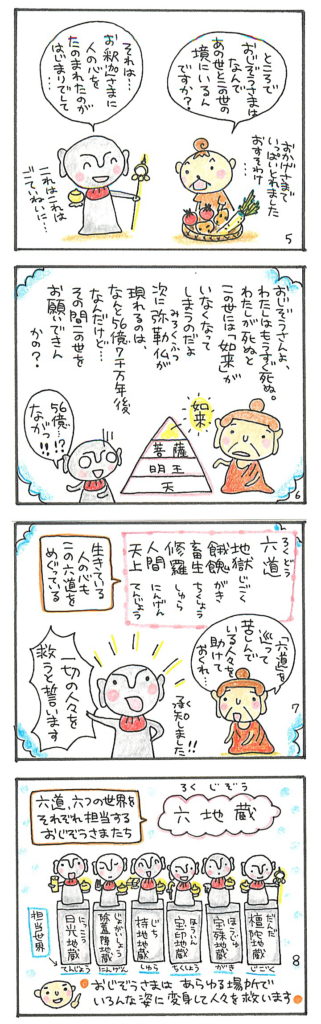 ところで
おじぞうさまは
なんで
あの世とこの世の
境にいるん
ですか?
おかげさまで
いっぱいとれました
おすそわけ
…
それは…
お釈迦さまに
人の心を
たのまれたのが
はじまりでして
…
これはこれは
ごていねいに…
5
おじぞうさんよ、
わたしはもうすぐ死ぬ。
わたしが死ぬと
この世には「如来」が
いなくなって
しまうのだよ
次に弥勒仏が
みろくぶつ
現れるのは、
なんと56億7千万年後
なんだけど…
その間この世を
お願いできん
かの?
如来
菩薩
明王
天
56億…!?
ながっ!!
6
六道
ろくどう
地獄
じごく
餓鬼
がき
畜生
ちくしょう
修羅
しゅら
人間
にんげん
天上
てんじょう
生きている
人の心も
この六道を
めぐっている
「六道」を
巡って
苦しんで
いる人々を
助けて
おくれ…
承知しました!!
一切の人々を
救うと誓います
7
ろくじぞう
六地蔵
六道、六つの世界を
それぞれ担当する
おじぞうさまたち
だんだ
檀陀地蔵
ほうじゅ
宝珠地蔵
ほういん
宝印地蔵
じち
持地地蔵
じょがいしょう
除蓋障地蔵
にっこう
日光地蔵
担当世界
じごく
がき
ちくしょう
しゅら
にんげん
てんじょう
8
おじぞうさまは あらゆる場所で
いろんな姿に変身して人々を救います